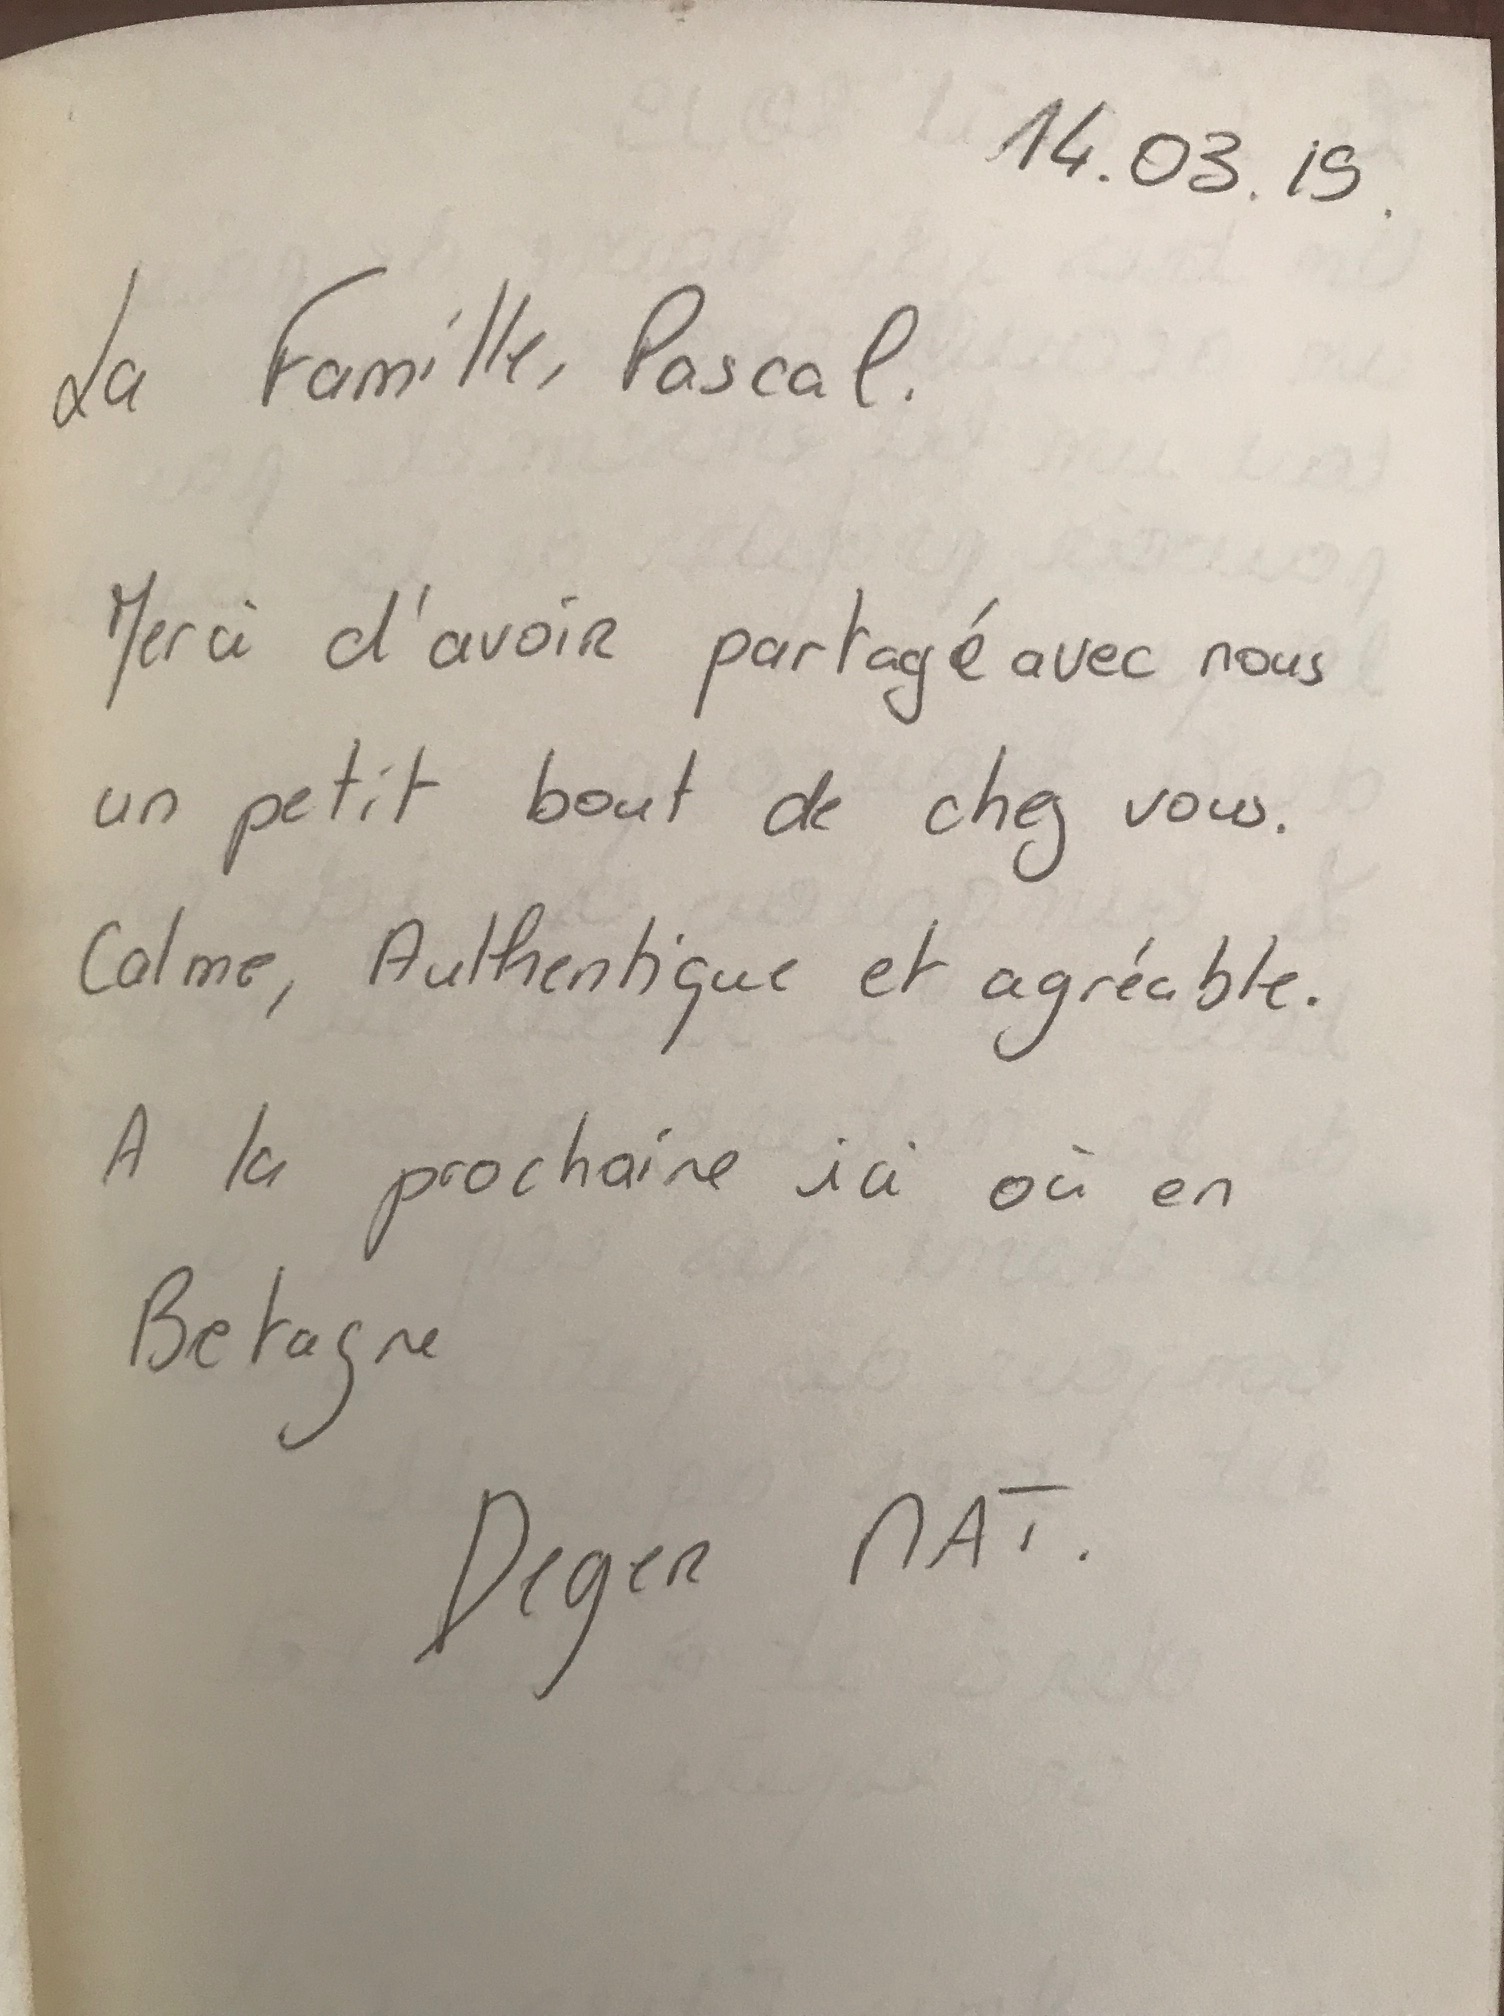 14.03.19.
La Famille, Pascal.
Merci d'avoir partagé avec nous
un petit bout de chez vous.
Calme, Authentique et agréable.
A la prochaine ici où en
Betagne
Deger NAT.